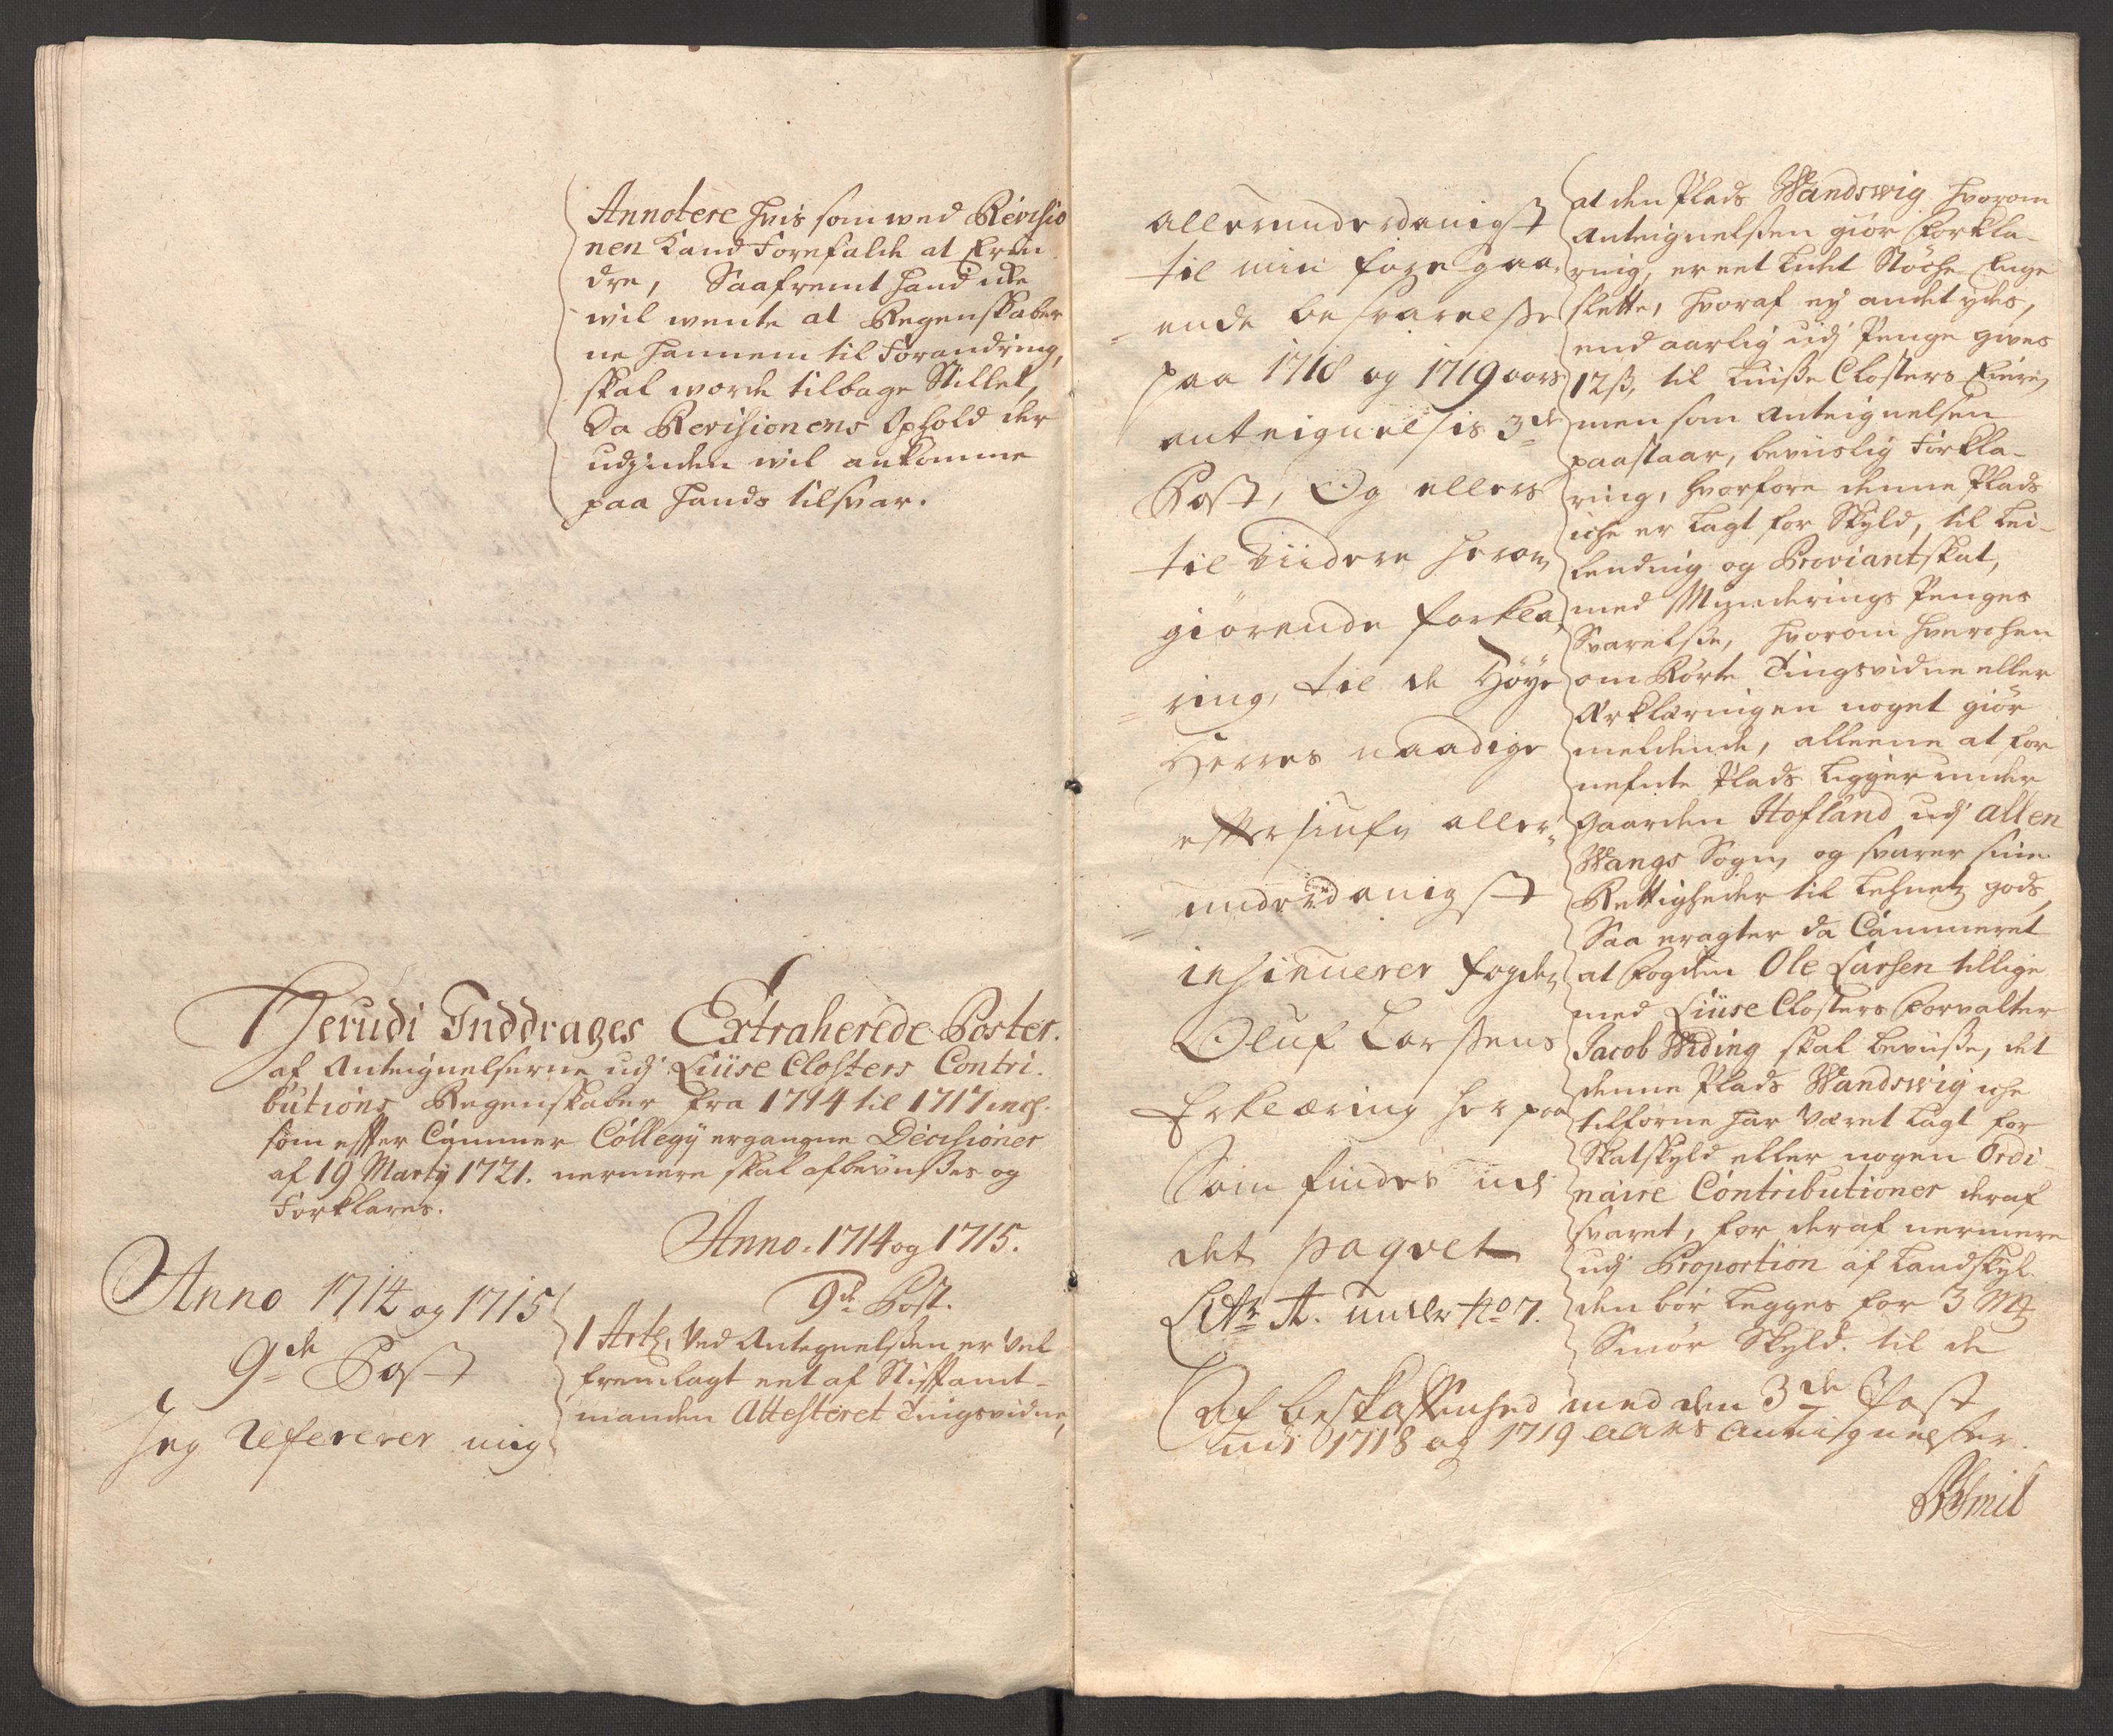 Annotere hvis som wed Revisio
nen kand Forefalde at Erin
dre, Saafremt hand icke
wil wente at Regenskaber
ne hannem til Forandring,
skal worde tilbage Stillet,
Da Revisionens Ophold der
udjnden wil ankomme
paa hands tilsvar.
Herudi Inddrages Extraherede Poster.
af Anteignelserne udj Liüse Closters Contri-
butions Regenskaber fra 1714 til 1717 incl.
som effter Cammer Collegij ergangne Decisioner
af 19 Martij 1721. nermere skal afbeviisses og
Forklares.
Anno. 1714 og 1715.
9de Post.
1 Artl. Ved Antegnelsen er vel
fremlagt eet af Stifftamt-
manden Attesteret Tingsvidne,
Anno 1714 og 1715
9de Post
Jeg Refererer mig
allerunderdanigst
til min foregaa-
ende besvarelsse
paa 1718 og 1719 aars
anteignelsis 3de
Post, Og ellers
til viidere herom
giörende forkla-
ring, til de Höye
Herres naadige
efftersiufn aller-
underdanigst
insinuerer fogden
Oluf Larssens
Erklæring her paa
Som findes udj
det paqvet
Littr A. under No 7.
at den Plads Wandswig hvorom
Anteignelssen giör Forkla-
ring, er eet lidet Støche Enge
slette, hvoraf ej andet ydes,
end aarlig udj Penge gives
12ß, til Liüsse Closters Eiere,
men som Anteignelsen
paastaar, beviislig Forkla-
ring, hvorfore denne Plads
iche er lagt for Skyld, til Lei-
lending og Proviantskat,
med Munderings Penges
Svarelsse, hvorom hverchen
om Rörte Tingsvidne eller
Erklæringen noget giör
meldende, alleene at for
nefnte Plads ligger under
gaarden Hofland udj Allen
Wangs Sogn, og svarer sine
Rettigheder til Lehnetz gods,
Saa eragter da Cammeret
at Fogden Ole Larsen tillige
med Liüse Closters Forvalter
Jacob Widing skal bevüsse, det
denne Plads Wandswig iche
tilforne har været lagt for
Skatskyld eller nogen Ordi-
naire Contributioner deraf
svaret, for deraf nermere
udj Proportion af Landskyl-
den bör legges for 3 Mk
Smör Skyld. til de
Af beskaffenhed med den 3de Post
udj 1718 og 1719 aars Anteignelsser.